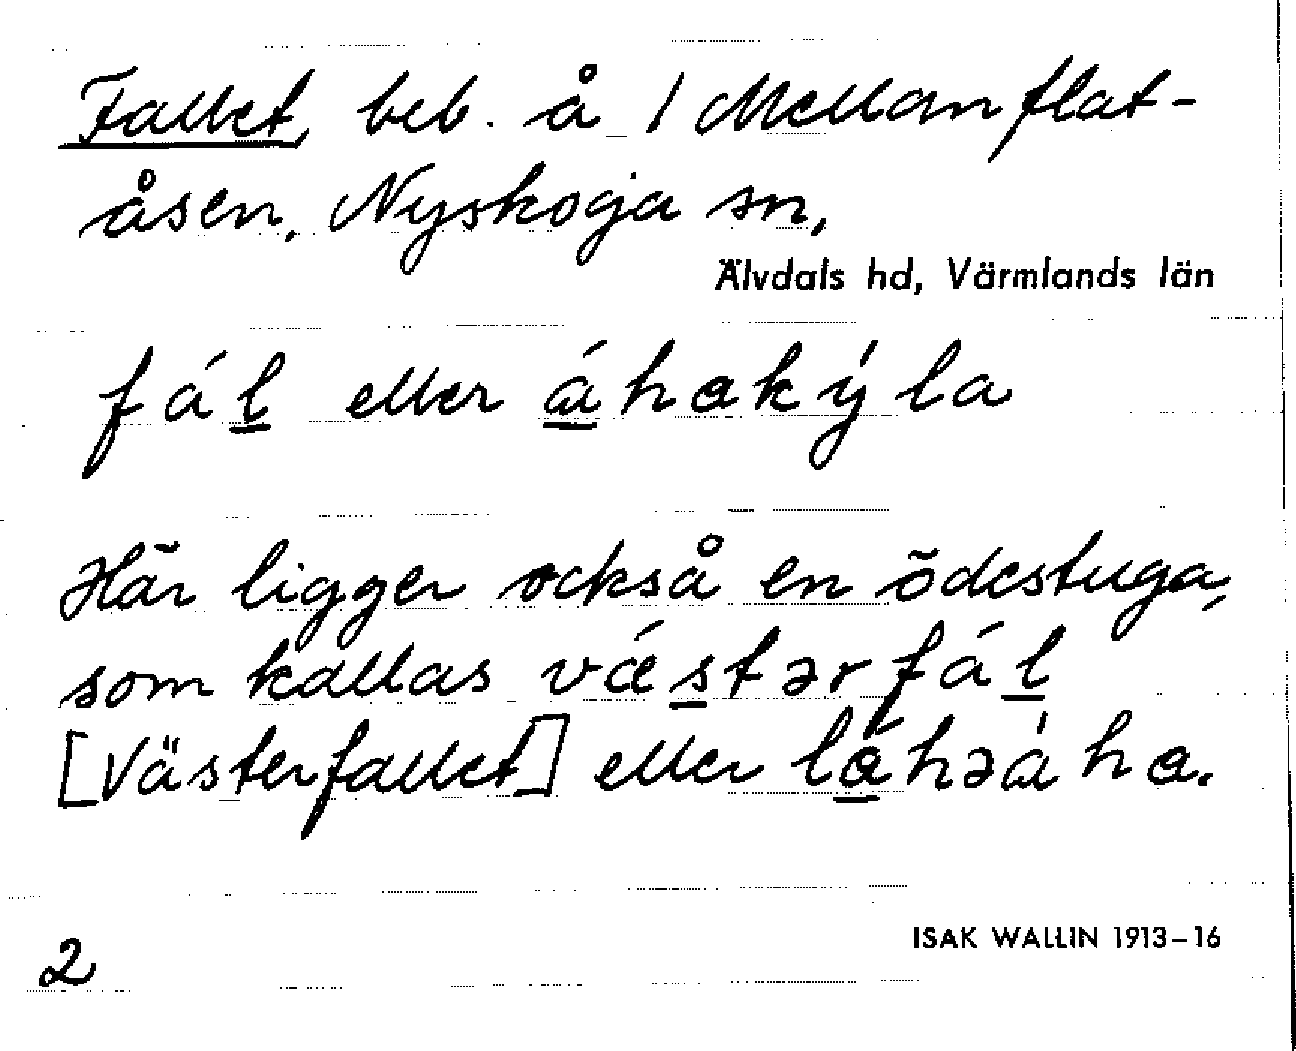 Fallet, beb. å 1 Mellanflat-
åsen, Nyskoga sn,
Älvdals hd, Värmlands län
fál eller áhakýla
Här ligger också en ödestuga,
som kallas væ´stərfál
[Västerfallet] eller láhəáha.
2
ISAK WALLIN 1913–16